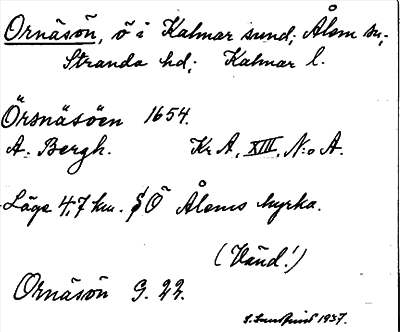 Ornäsön, ö i Kalmar sund, Ålem sn,
Stranda hd, Kalmar l.
Örsnäsöen 1654.
A. Bergh. Kr A, XIII, N:o A.
Läge 4,7 km. SÖ Ålems kyrka.
(Vänd!)
Ornäsön G. 22.
1937.